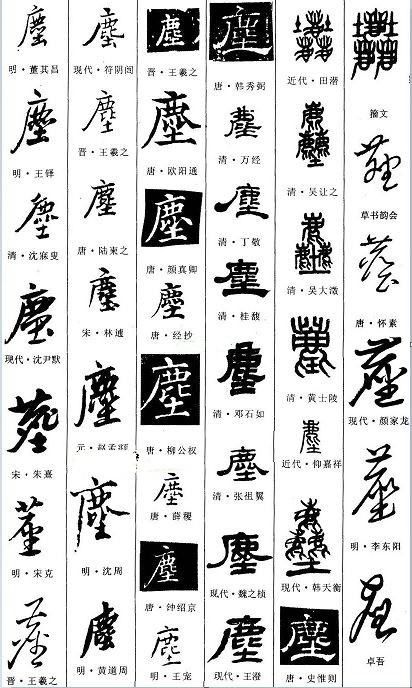 塵
明·董其昌
塵
明·王铎
塵
清·沈寐叟
塵
现代·沈尹默
塵
宋·朱熹
塵
明·宋克
塵
晋·王羲之
塵
现代·
塵
晋·王羲之
塵
唐·陆柬之
塵
宋·林逋
塵
元·赵孟頫
塵
明·沈周
塵
明·黄道周
塵
晋·王羲之
塵
唐·欧阳通
塵
唐·颜真卿
塵
唐·经抄
塵
唐·柳公权
塵
唐·薛稷
塵
唐·钟绍京
塵
明·王宠
塵
唐·韩秀弼
塵
清·万经
塵
清·丁敬
塵
清·桂馥
塵
清·邓石如
塵
清·张祖翼
塵
现代·魏之桢
塵
现代·王澄
塵
近代·田潜
塵
清·吴让之
塵
清·吴大澂
塵
清·黄士陵
塵
近代·仰嘉祥
塵
现代·韩天衡
塵
唐·史惟则
塵
籀文
塵
草书韵会
塵
唐·怀素
塵
现代·颜家龙
塵
明·李东阳
塵
卓吾